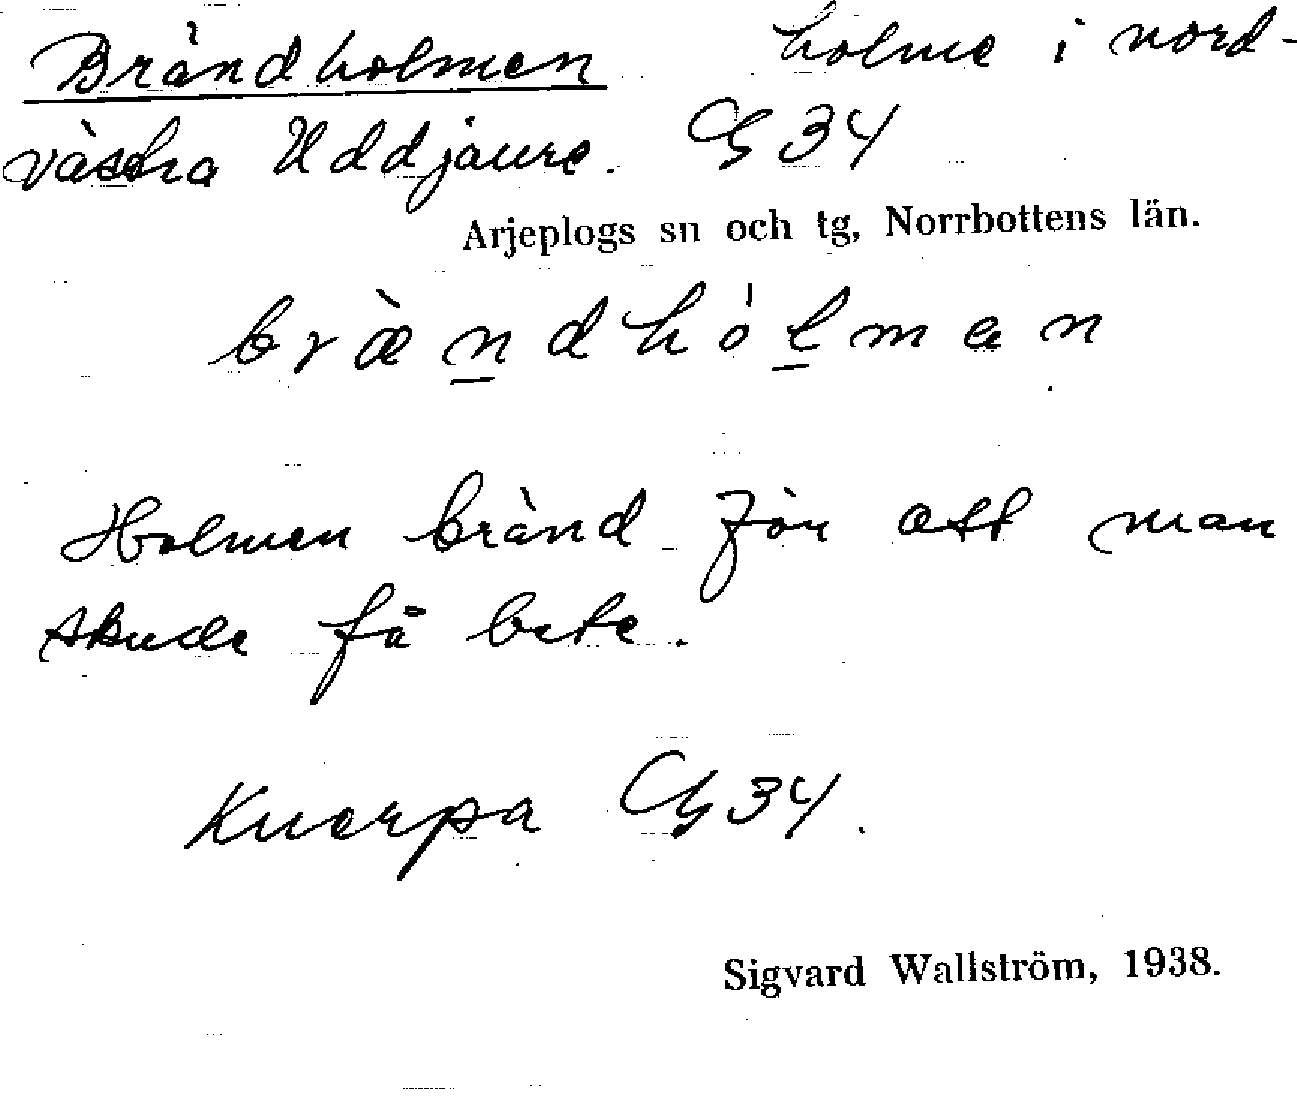 Brändholmen holme i nord-
västra Uddjaure. G 34
Arjeplogs sn och tg, Norrbottens län.
bræ̀n̲dhól̲man
Holmen bränd för att man
skulle få bete.
Kuerpa G 34.
Sigvard Wallström, 1938.